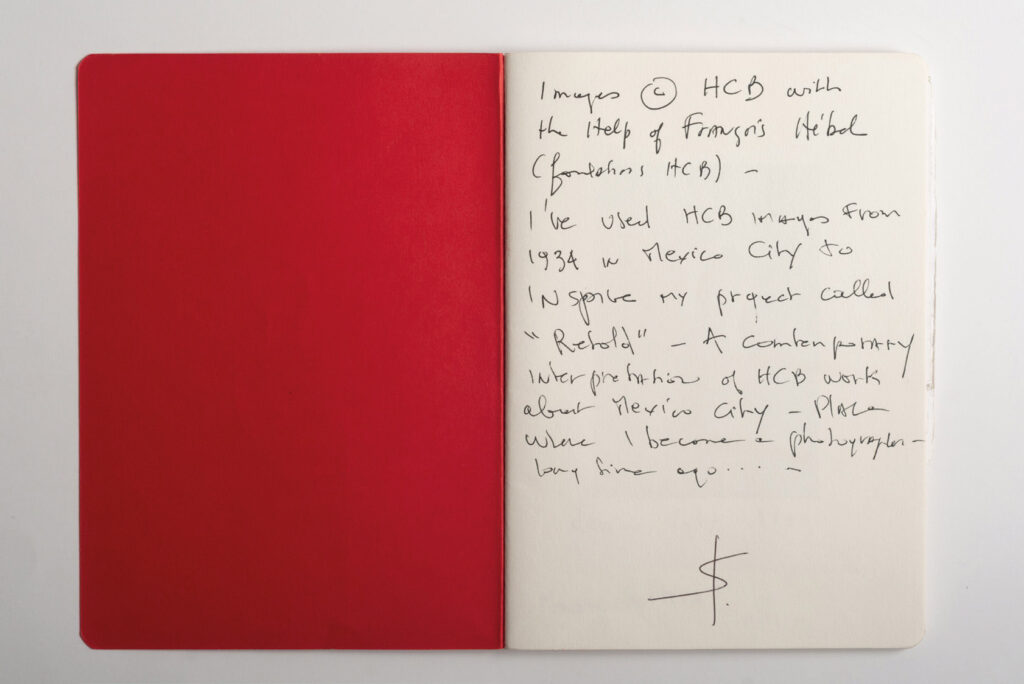 Images © HCB with
the Help of François Hébel
(fondations HCB) –
I've used HCB images from
1934 in Mexico City to
INspire my project called
"Retold" – A contemporary
interpretation of HCB work
about Mexico City – Place
where I become a photographer –
long time ago... –